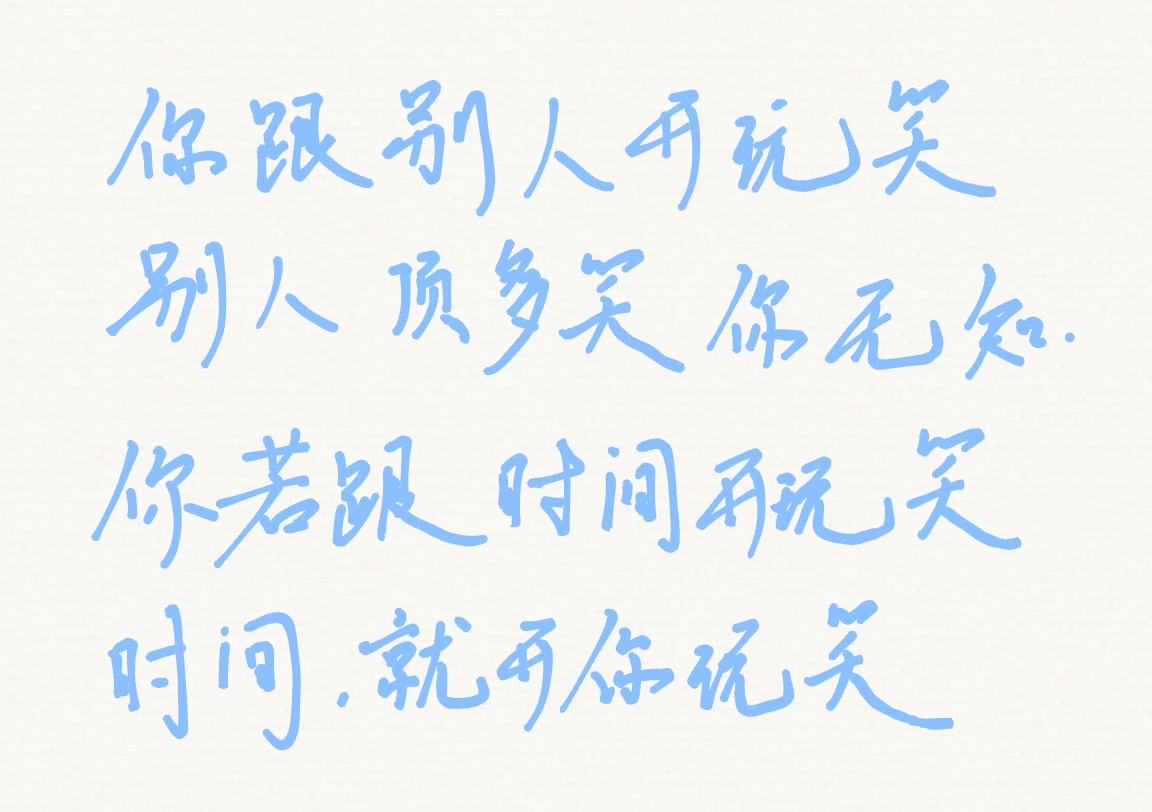 你跟别人开玩笑
别人顶多笑你无知.
你若跟时间开玩笑
时间,就开你玩笑